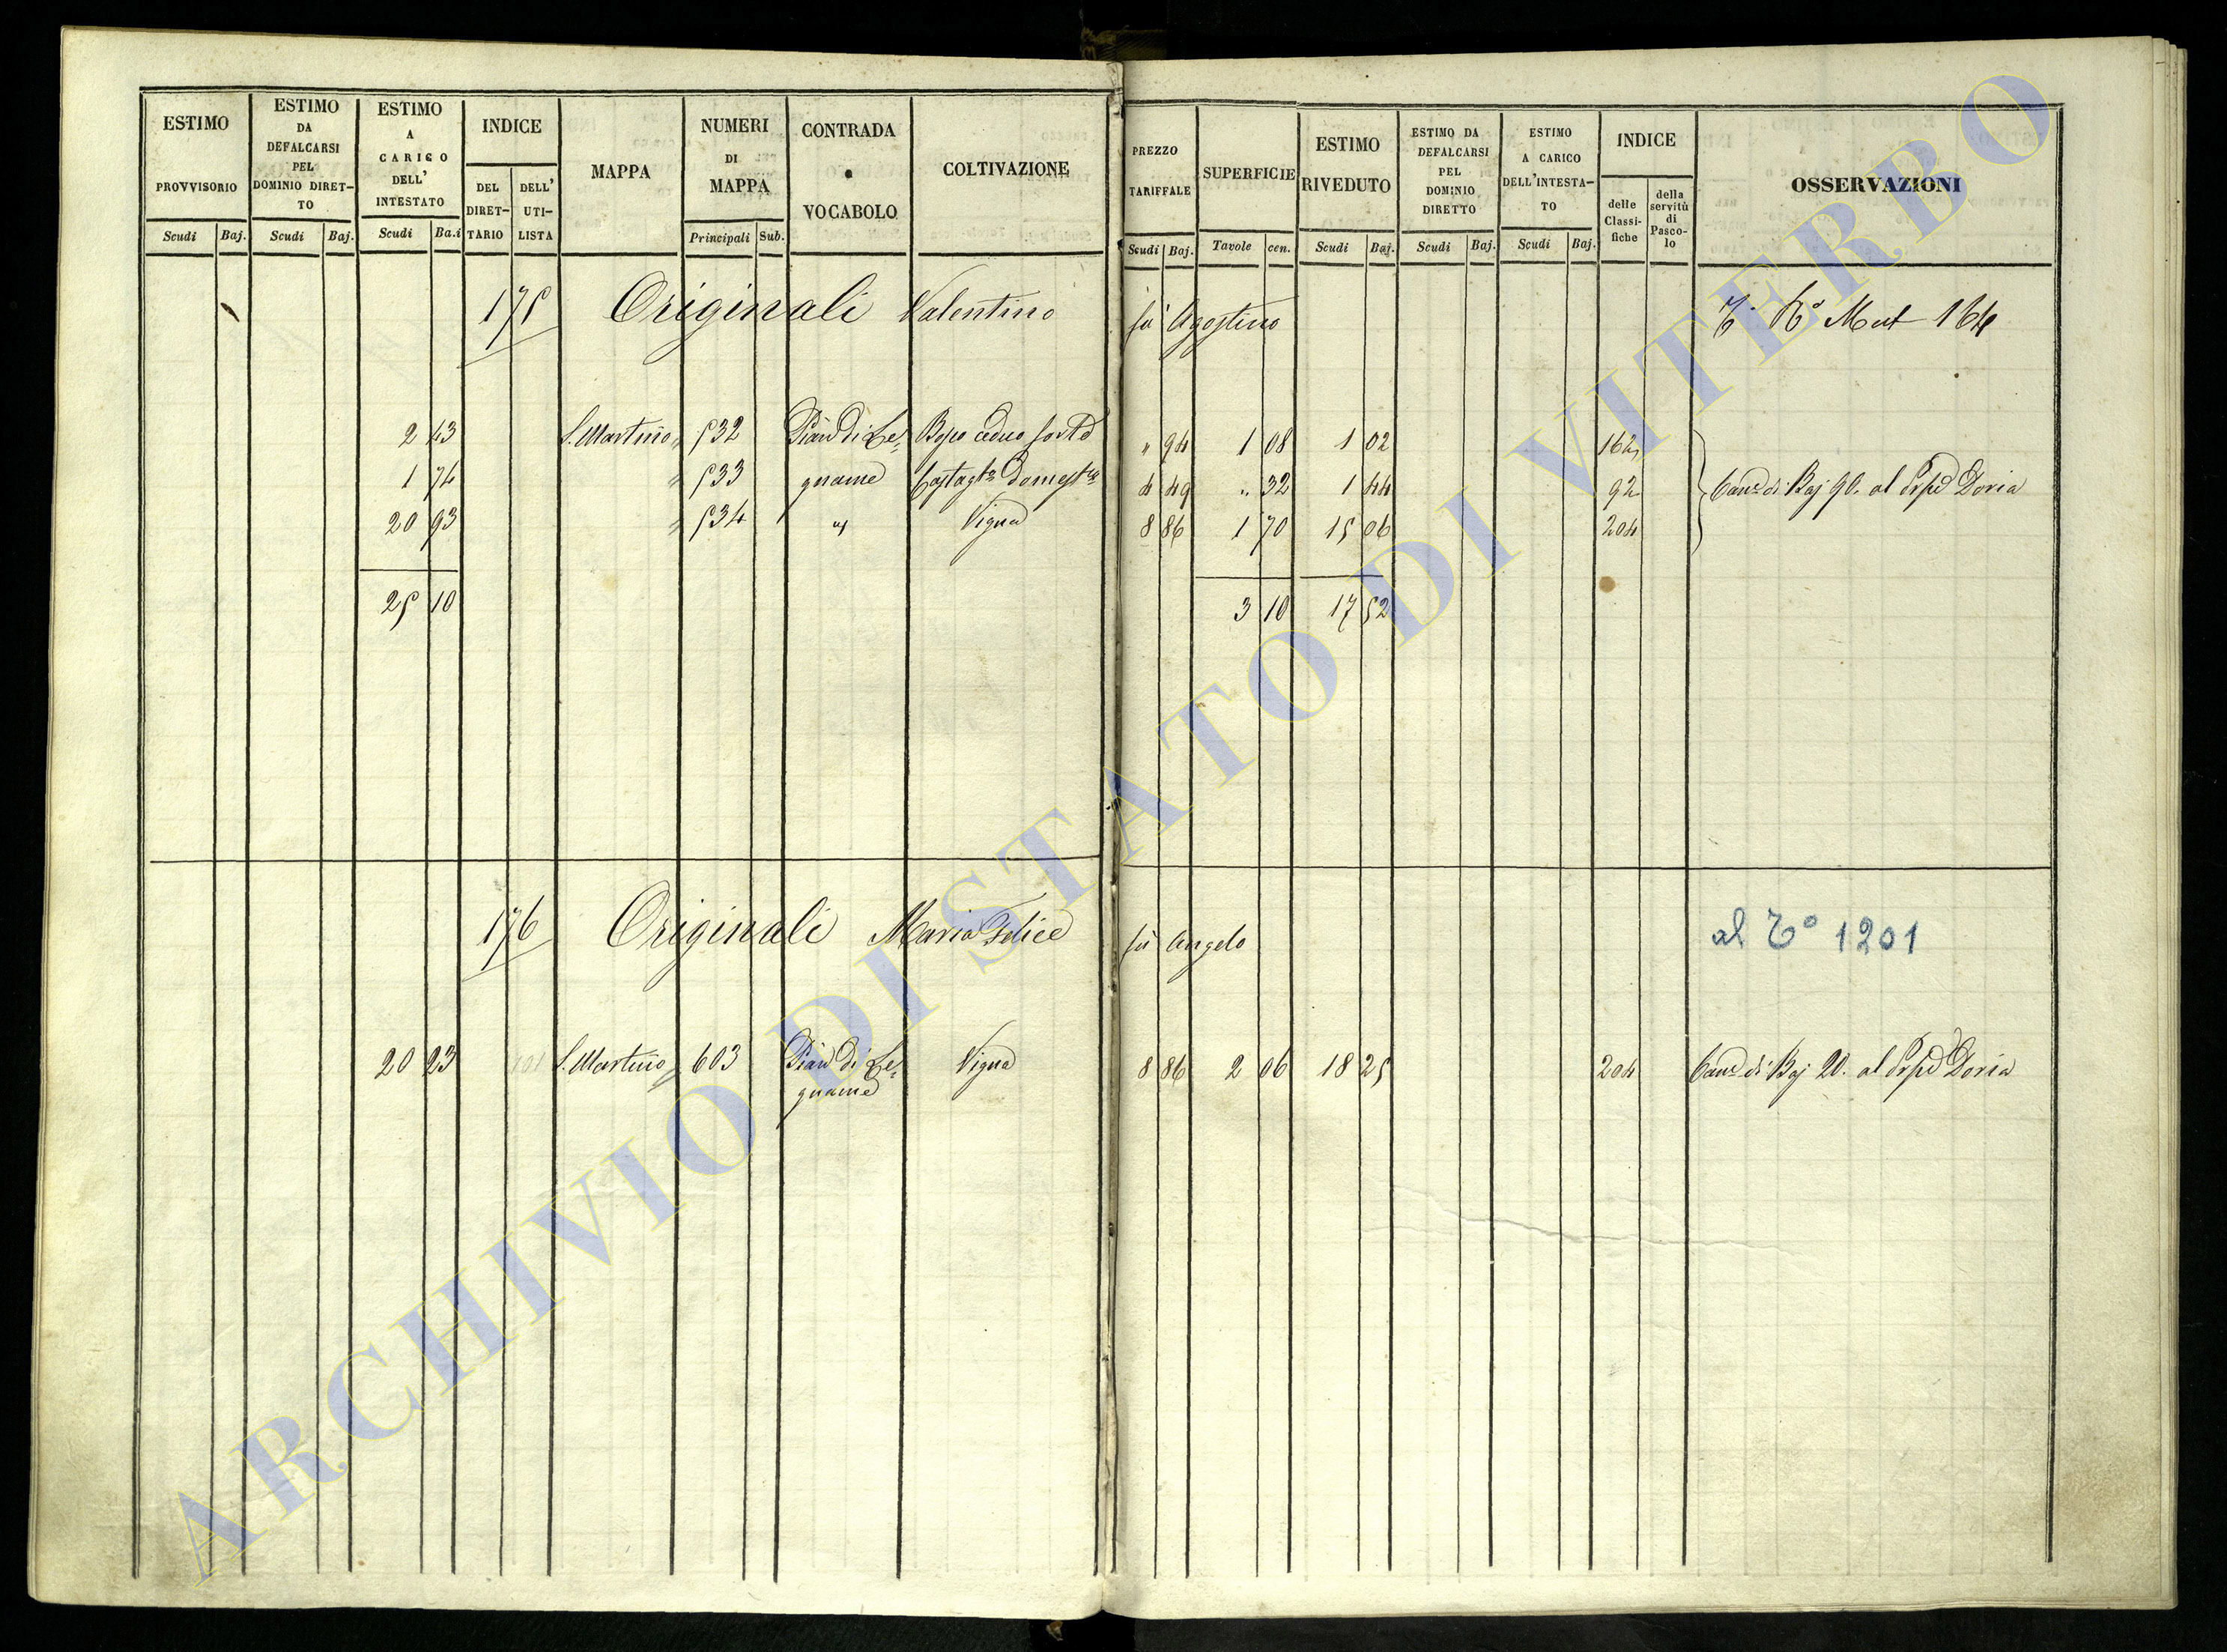 ESTIMO PROVVISORIO Scudi Baj.
ESTIMO DA DEFALCARSI PEL DOMINIO DIRET- TO Scudi Baj.
ESTIMO A CARICO DELL' INTESTATO Scudi Ba.i
INDICE DEL DIRET- TARIO DELL' UTI- LISTA
MAPPA
NUMERI DI MAPPA Principali Sub.
CONTRADA o VOCABOLO
COLTIVAZIONE
PREZZO TARIFFALE Scudi Baj.
SUPERFICIE Tavole cen.
ESTIMO RIVEDUTO Scudi Baj.
ESTIMO DA DEFALCARSI PEL DOMINIO DIRETTO Scudi Baj.
ESTIMO A CARICO DELL'INTESTA- TO Scudi Baj.
INDICE delle Classi- fiche della servitù di Pasco- lo
OSSERVAZIONI
175 Originali Valentino fù Agostino Mut 164
2 43 S. Martino 532 Pian di Le- Bosco ceduo forte " 94 1 08 1 02 162
1 74 " 533 gname Castagto domestco 4 49 " 32 1 44 92 Cane di Baj 90. al Prpe Doria
20 93 " 534 " Vigna 8 86 1 70 15 06 204
25 10 3 10 17 52
176 Originali Maria Felice fù Angelo al To 1201
20 23 101 S. Martino 603 Pian di Le- Vigna 8 86 2 06 18 25 204 Cane di Baj 20. al Prpe Doria
gname
ARCHIVIO DI STATO DI VITERBO